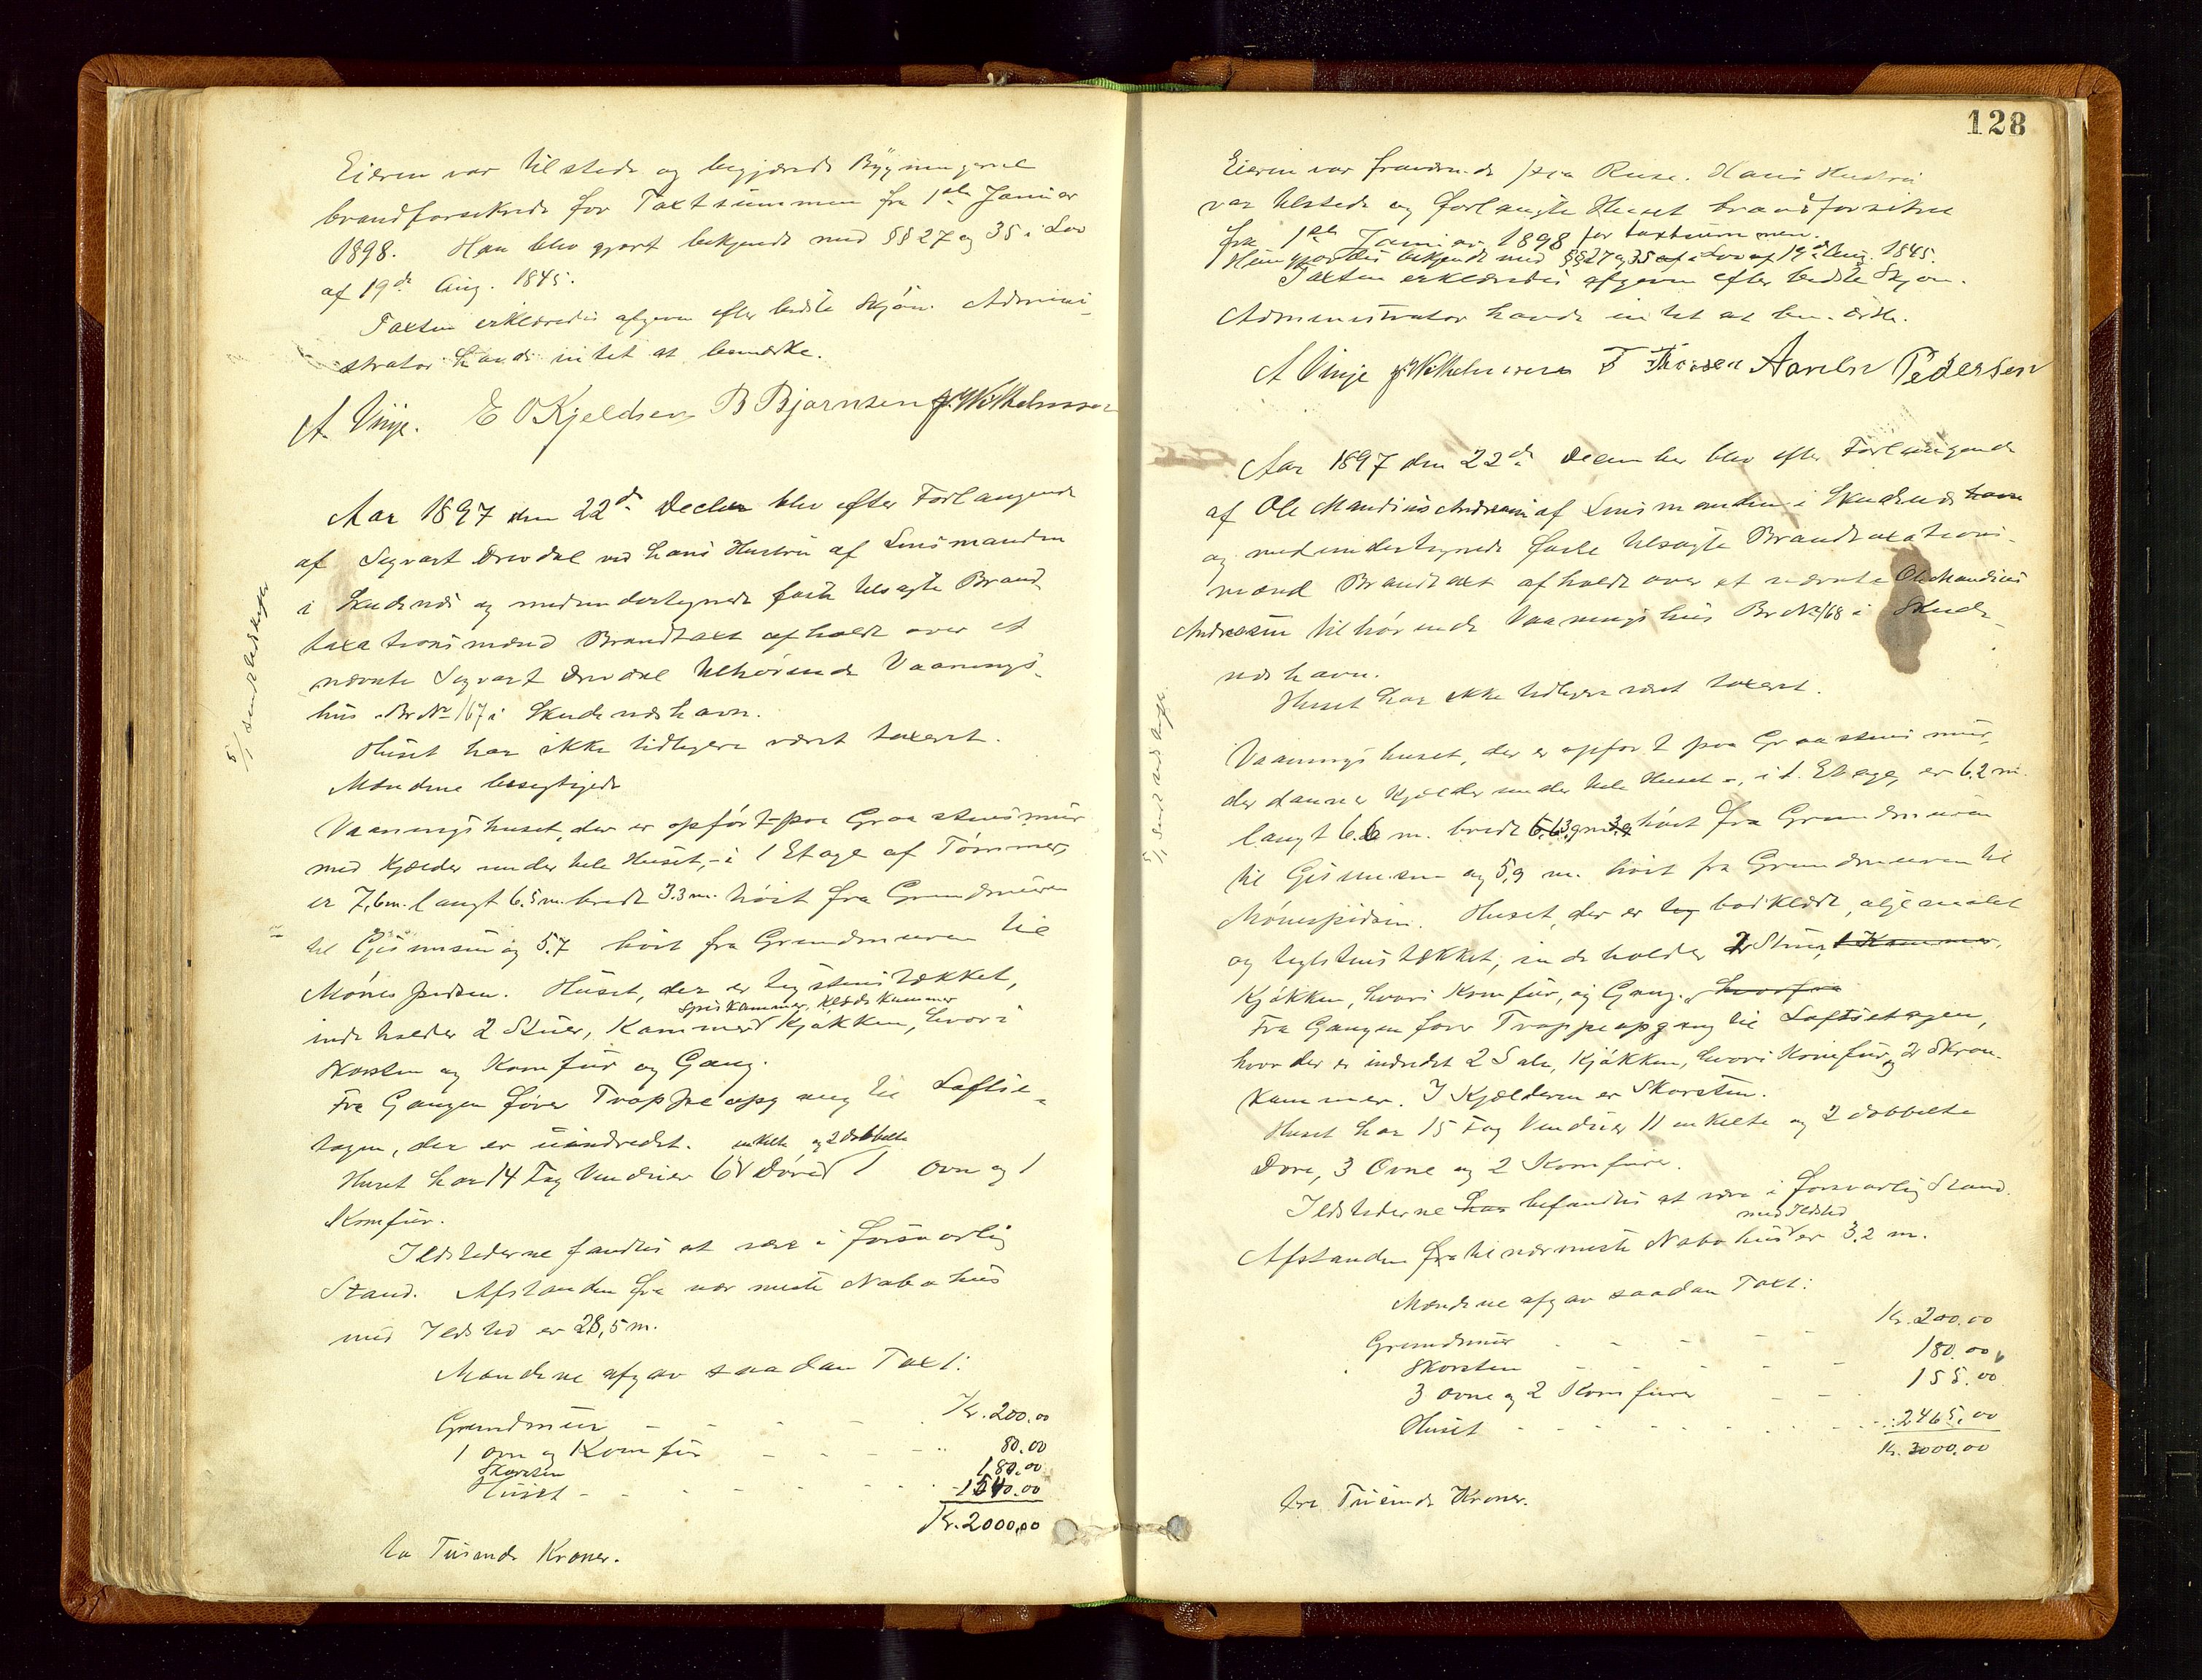 Eieren var tilstede og begjærede Bygningerne
brandforsikrede for Taxtsummen fra 1ste Januar
1898. Han blev gjort bekjendt med §§ 27 og 35 i Lov
af 19de Aug. 1845.
Taxten erklæredes afgiven efter bedste Skjøn. Admini-
strator havde intet at bemærke.
A. Vinje. E O Kjeldsen B Bjørnsen J. Wilhelmsen
Aar 1897 den 22de Decber blev efter Forlangende
af Sigvart Drevdal ved hans Hustru af Lensmanden
i Skudenes og medundertegnede faste tilsagte Brand-
taxationsmænd Brandtaxt afholdt over et
nævnte Sigvart Drevdal tilhørende Vaanings-
hus Br No 167 i Skudeneshavn.
Huset har ikke tidligere været taxeret.
Mændene besigtigede
Vaaningshuset, der er opført paa Graastensmur
med Kjælder under hele Huset, - i 1 Etage af Tømmer,
er 7,6 m. langt 6.5 m. bredt 3.3 m. høit fra Grundmuren
til Gesimsen og 5.7 høit fra Grundmuren til
Mønespidsen. Huset, der er tegstenstækket,
Spiskammer, Klædekammer
indeholder 2 Stuer, Kammer Kjøkken, hvori
Skorsten og Komfur og Gang.
Fra Gangen fører Trappeopgang til Loftse-
tagen, der er uindredet.
enkelte og 2 dobbelte
Huset har 14 Fag Vinduer 6 Døre 1 Ovn og 1
Komfur.
Ildstederne fandtes at være i forsvarlig
Stand. Afstanden fra nærmeste Nabohus
med Ildsted er 28,5 m.
Mændene afgav saadan Taxt:
Grundmur - - - - Kr. 200.00
1 ovn og 1 Komfur - - - - 80.00
Skorsten 180.00
Huset - - - - - 1540.00
Kr. 2000,00
to Tusinde Kroner.
5/1 sendt Udskrift
128
Eieren var fraværende paa Reise. Hans Hustru
var tilstede og forlangte Huset brandforsikret
fra 1ste Januar 1898 for taxtsummen.
Hun gjordes bekjendt med §§ 27 og 35 af i Lov af 19de Aug. 1845.
Taxten erklæredes afgiven efter bedste Skjøn.
Administrator havde intet at bemærke.
A Vinje J. Wilhelmsen T Thorsen Aanen Pedersen
Aar 1897 den 22de December blev efter Forlangende
af Ole Maudius Andreasen af Lensmanden i Skudeneshavn
og medundertegnede faste tilsagte Brandtaxations-
mænd Brandtaxt afholdt over et nævnte Ole Maudius
Andreasen tilhørende Vaaningshus Br No 168 i Skude-
neshavn.
Huset har ikke tidligere været taxeret.
Vaaningshuset, der er opført paa Graastensmur,
der danner Kjælder under hele Huset -, i 1. Etage, er 6,2 m.
langt 6.6 m. bredt 3.9 høit fra Grundmuren
til Gesimsen og 5,9 m. høit fra Grundmuren til
Mønespidsen. Huset, der er bordklædt, oljemalet
og teglstenstækket, indeholder 2 Stuer, 1 Kammer,
Kjøkken, hvori Komfur, og Gang. hvorfra
Fra Gangen fører Trappeopgang til Loftsetagen,
hvor der er indredet 2 Sale, Kjøkken, hvori Komfur, og 2 Skraa-
kammer. I Kjælderen er Skorsten.
Huset har 15 Fag Vinduer 11 enkelte og 2 dobbelte
Døre, 3 Ovne og 2 Komfurer.
Ildstederne har befandtes at være i forsvarlig Stand.
med Ildsted
Afstanden fra til nærmeste Nabohus er 3.2 m.
Mændene afgav saadan Taxt:
Grundmur - - - - Kr. 200.00
Skorsten - - - - 180.00
3 ovne og 2 Komfurer - - 155.00
Huset - - - - - 2465,00
Kr. 3000.00
tre Tusinde Kroner.